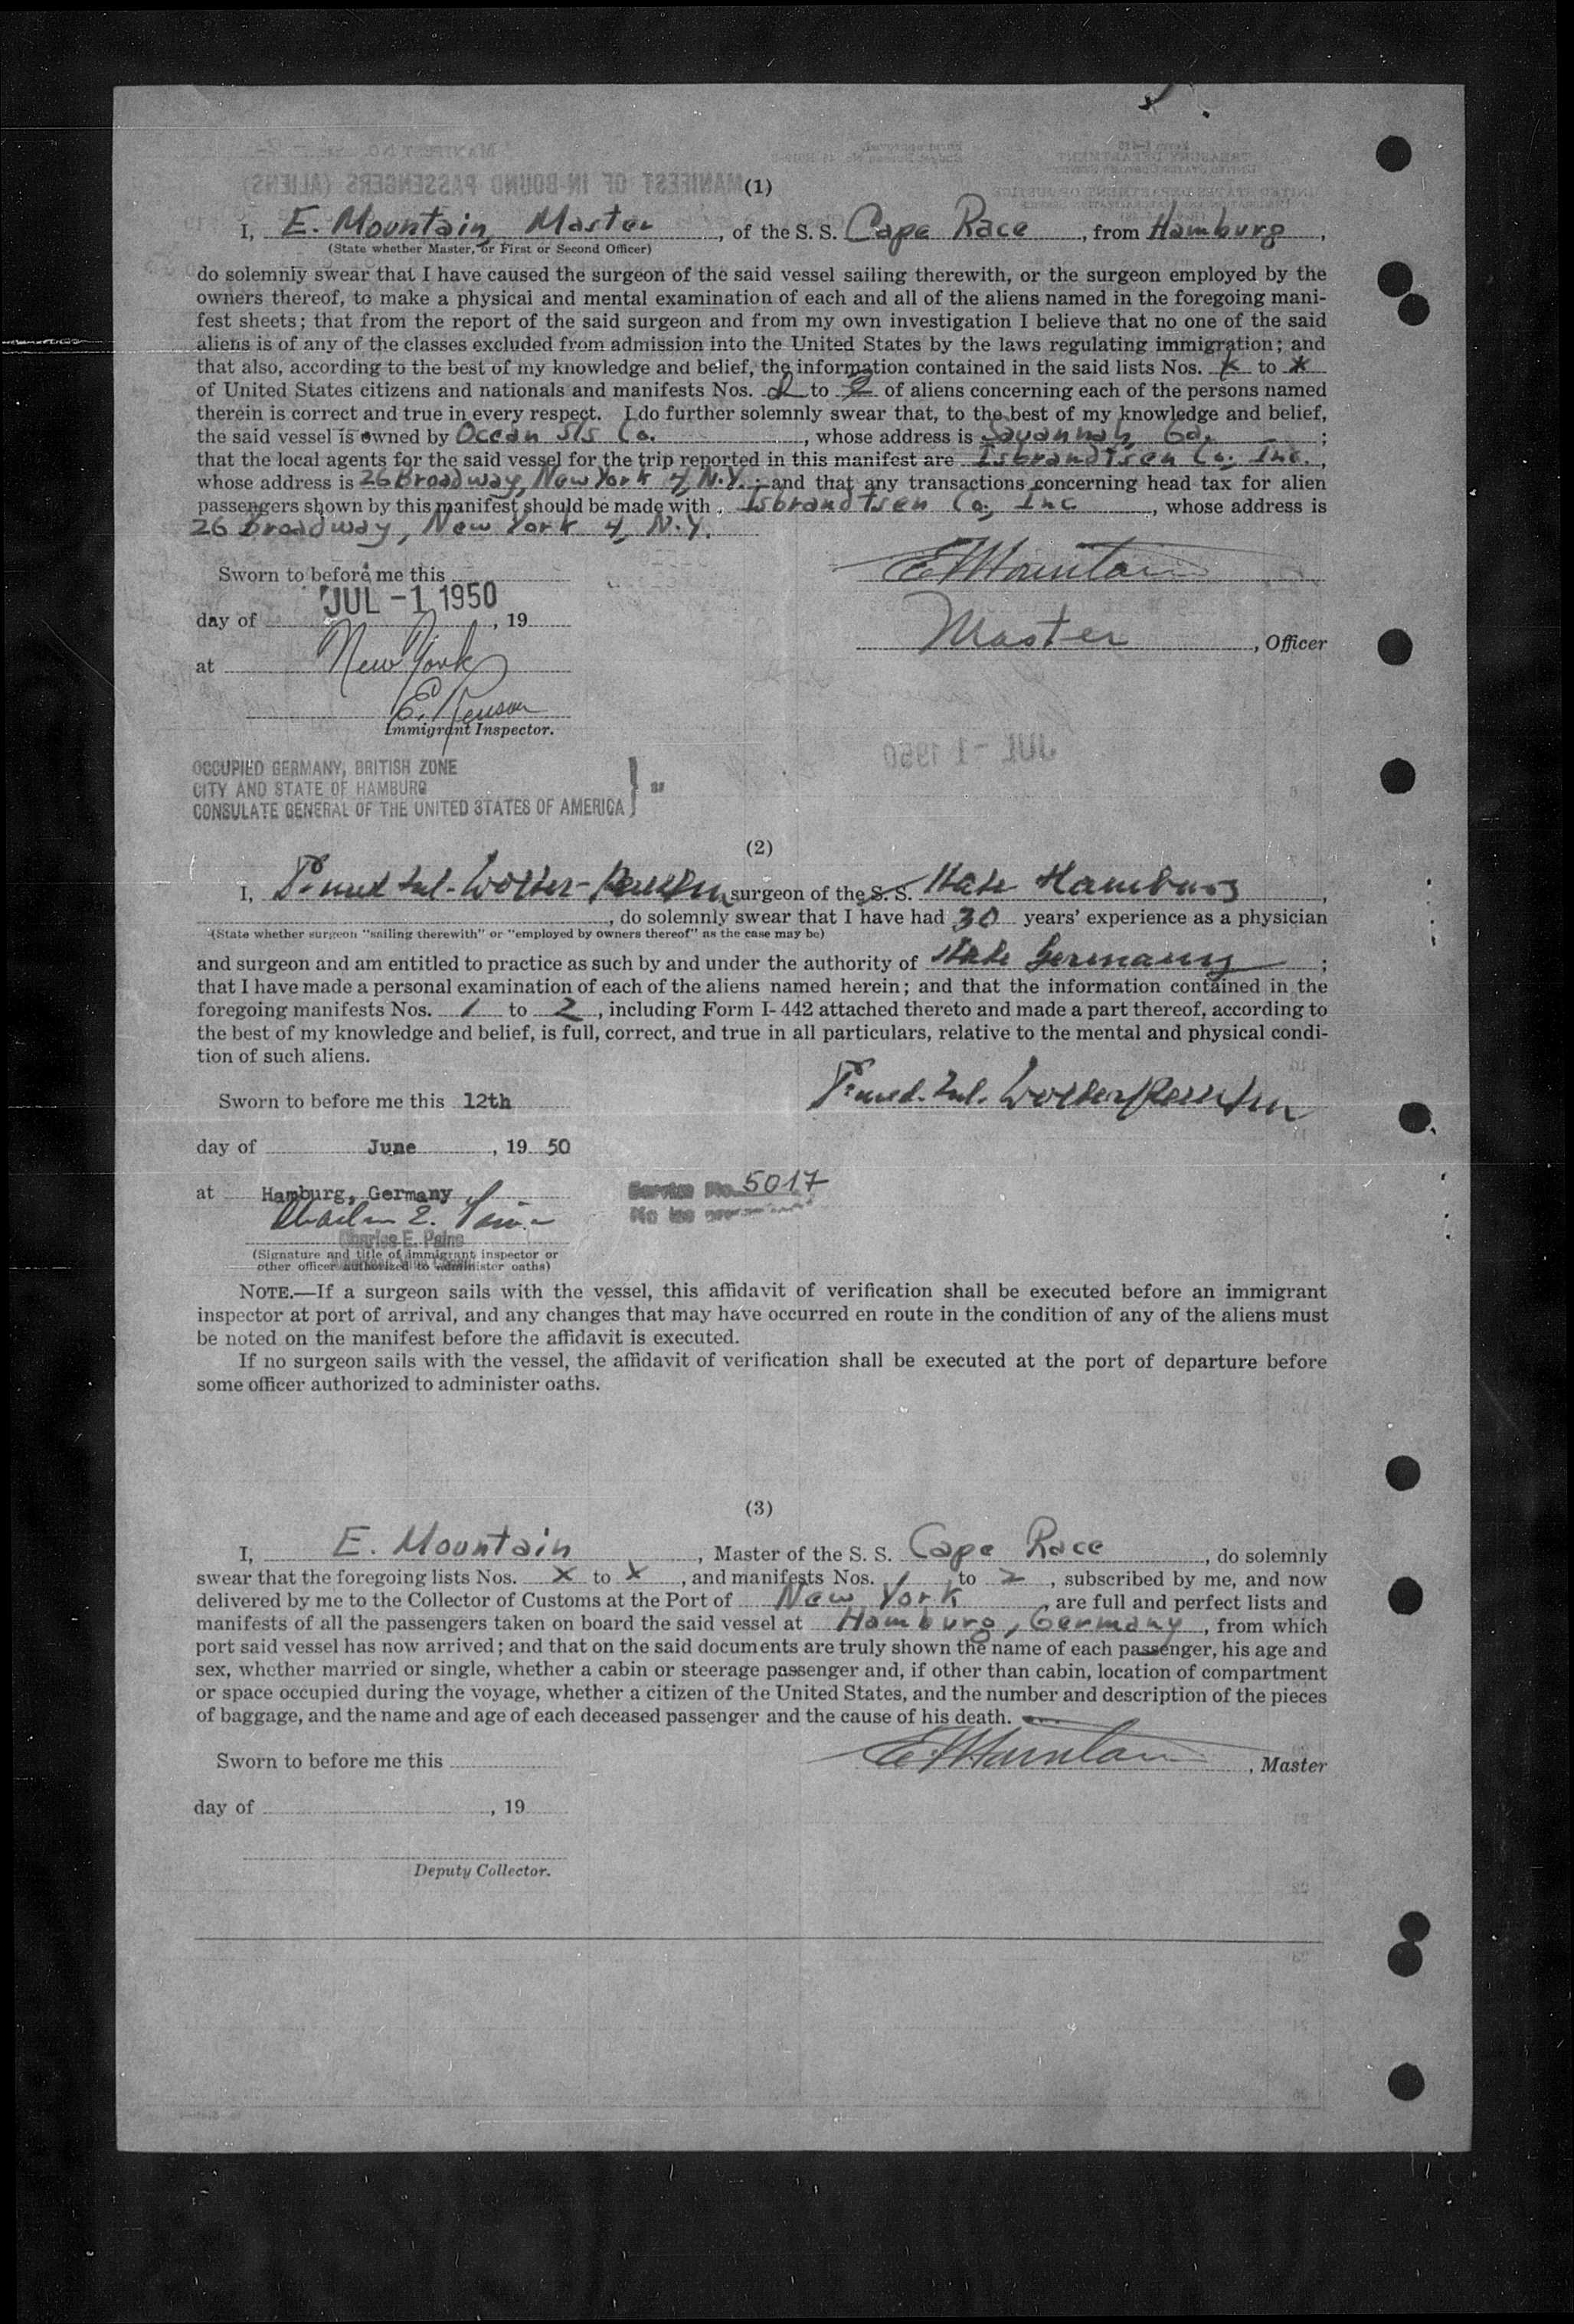 (1)
I, E. Mountain, Master, of the S. S. Cape Race, from Hamburg,
(State whether Master, or First or Second Officer)
do solemnly swear that I have caused the surgeon of the said vessel sailing therewith, or the surgeon employed by the
owners thereof, to make a physical and mental examination of each and all of the aliens named in the foregoing mani-
fest sheets; that from the report of the said surgeon and from my own investigation I believe that no one of the said
aliens is of any of the classes excluded from admission into the United States by the laws regulating immigration; and
that also, according to the best of my knowledge and belief, the information contained in the said lists Nos. x to x
of United States citizens and nationals and manifests Nos. to 2 of aliens concerning each of the persons named
therein is correct and true in every respect. I do further solemnly swear that, to the best of my knowledge and belief,
the said vessel is owned by Ocean S/S Co., whose address is Savannah, Ga.;
that the local agents for the said vessel for the trip reported in this manifest are Isbrandtsen Co., Inc.,
whose address is 26 Broadway, New York 4, N.Y.; and that any transactions concerning head tax for alien
passengers shown by this manifest should be made with Isbrandtsen Co., Inc, whose address is
26 Broadway, New York 4, N.Y.
Sworn to before me this
E Mountain
JUL -1 1950
day of , 19
Master, Officer
at New York
E.
Immigrant Inspector.
JUL -1 1950
OCCUPIED GERMANY, BRITISH ZONE
CITY AND STATE OF HAMBURG
CONSULATE GENERAL OF THE UNITED STATES OF AMERICA } ss
(2)
I, surgeon of the S. S. State Hamburg,
, do solemnly swear that I have had 30 years' experience as a physician
(State whether surgeon "sailing therewith" or "employed by owners thereof" as the case may be)
and surgeon and am entitled to practice as such by and under the authority of State Germany;
that I have made a personal examination of each of the aliens named herein; and that the information contained in the
foregoing manifests Nos. 1 to 2, including Form I-442 attached thereto and made a part thereof, according to
the best of my knowledge and belief, is full, correct, and true in all particulars, relative to the mental and physical condi-
tion of such aliens.
Sworn to before me this 12th
day of June, 19 50
at Hamburg, Germany
Service No. 5017
Charles E. Paine
Charles E. Paine
(Signature and title of immigrant inspector or
other officer authorized to administer oaths)
NOTE.—If a surgeon sails with the vessel, this affidavit of verification shall be executed before an immigrant
inspector at port of arrival, and any changes that may have occurred en route in the condition of any of the aliens must
be noted on the manifest before the affidavit is executed.
If no surgeon sails with the vessel, the affidavit of verification shall be executed at the port of departure before
some officer authorized to administer oaths.
(3)
I, E. Mountain, Master of the S. S. Cape Race, do solemnly
swear that the foregoing lists Nos. x to x, and manifests Nos. 1 to 2, subscribed by me, and now
delivered by me to the Collector of Customs at the Port of New York, are full and perfect lists and
manifests of all the passengers taken on board the said vessel at Hamburg, Germany, from which
port said vessel has now arrived; and that on the said documents are truly shown the name of each passenger, his age and
sex, whether married or single, whether a cabin or steerage passenger and, if other than cabin, location of compartment
or space occupied during the voyage, whether a citizen of the United States, and the number and description of the pieces
of baggage, and the name and age of each deceased passenger and the cause of his death.
Sworn to before me this
E Mountain, Master
day of , 19
Deputy Collector.